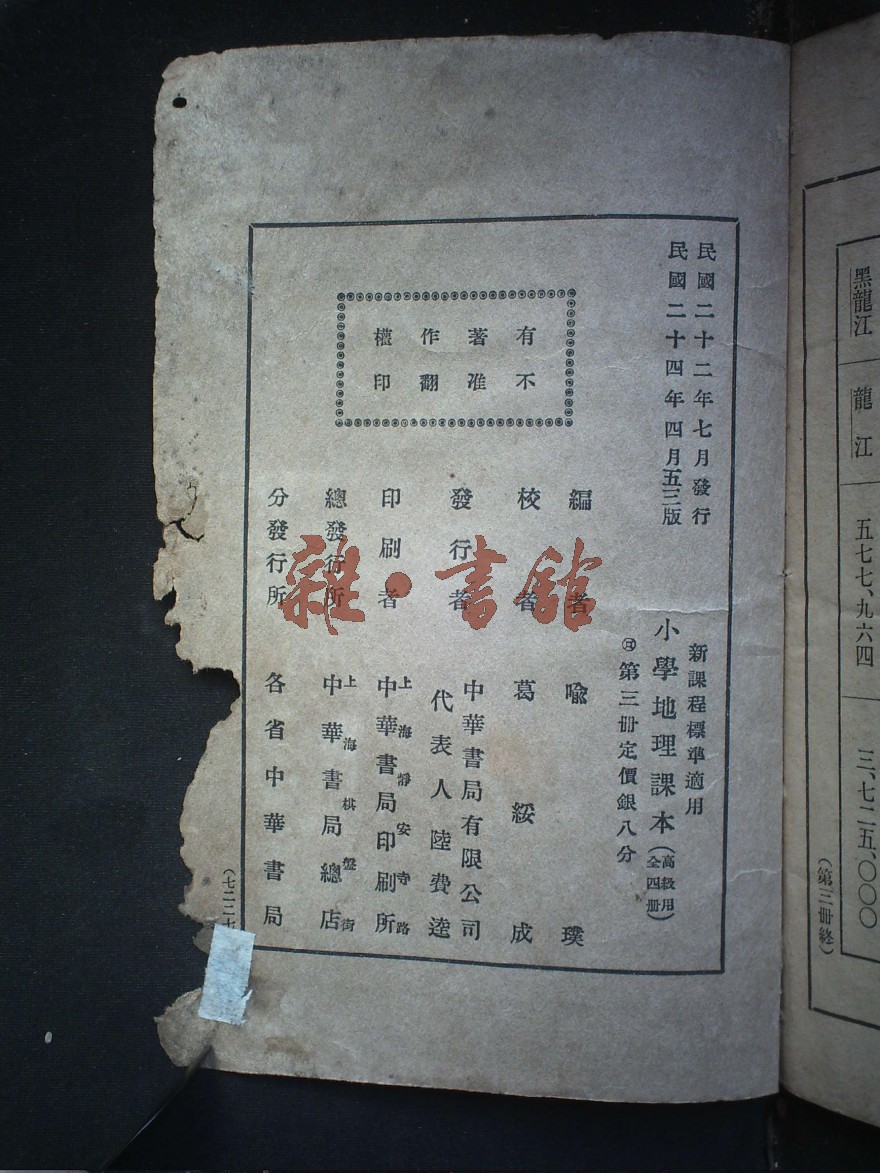 黑龍江 龍江 五七七、九六四 三、七二五、〇〇〇
(第三冊終)
民國二十二年七月發行
民國二十四年四月五三版
新課程標準適用
小學地理課本(高級用 全四冊)
第三冊定價銀八分
有著作權
不准翻印
編者 喩璞
校者 葛綏成
發行者 中華書局有限公司
代表人 陸費逵
印刷者 上海靜安寺路
中華書局印刷所
總發行所 上海棋盤街
中華書局總店
分發行所 各省中華書局
(七二二
雜·書館